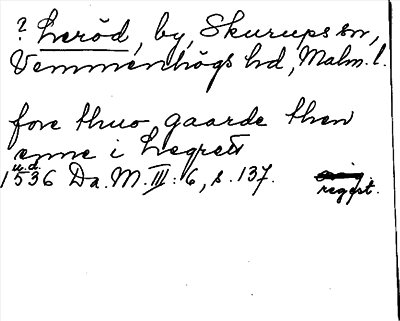 ? Leröd, by, Skurups sn,
Vemmenhögs hd, Malm. l.
fore thuo gaarde then
enne i Legrett
u.d.
1536 Da. M. III: 6, s. 137.
regest.